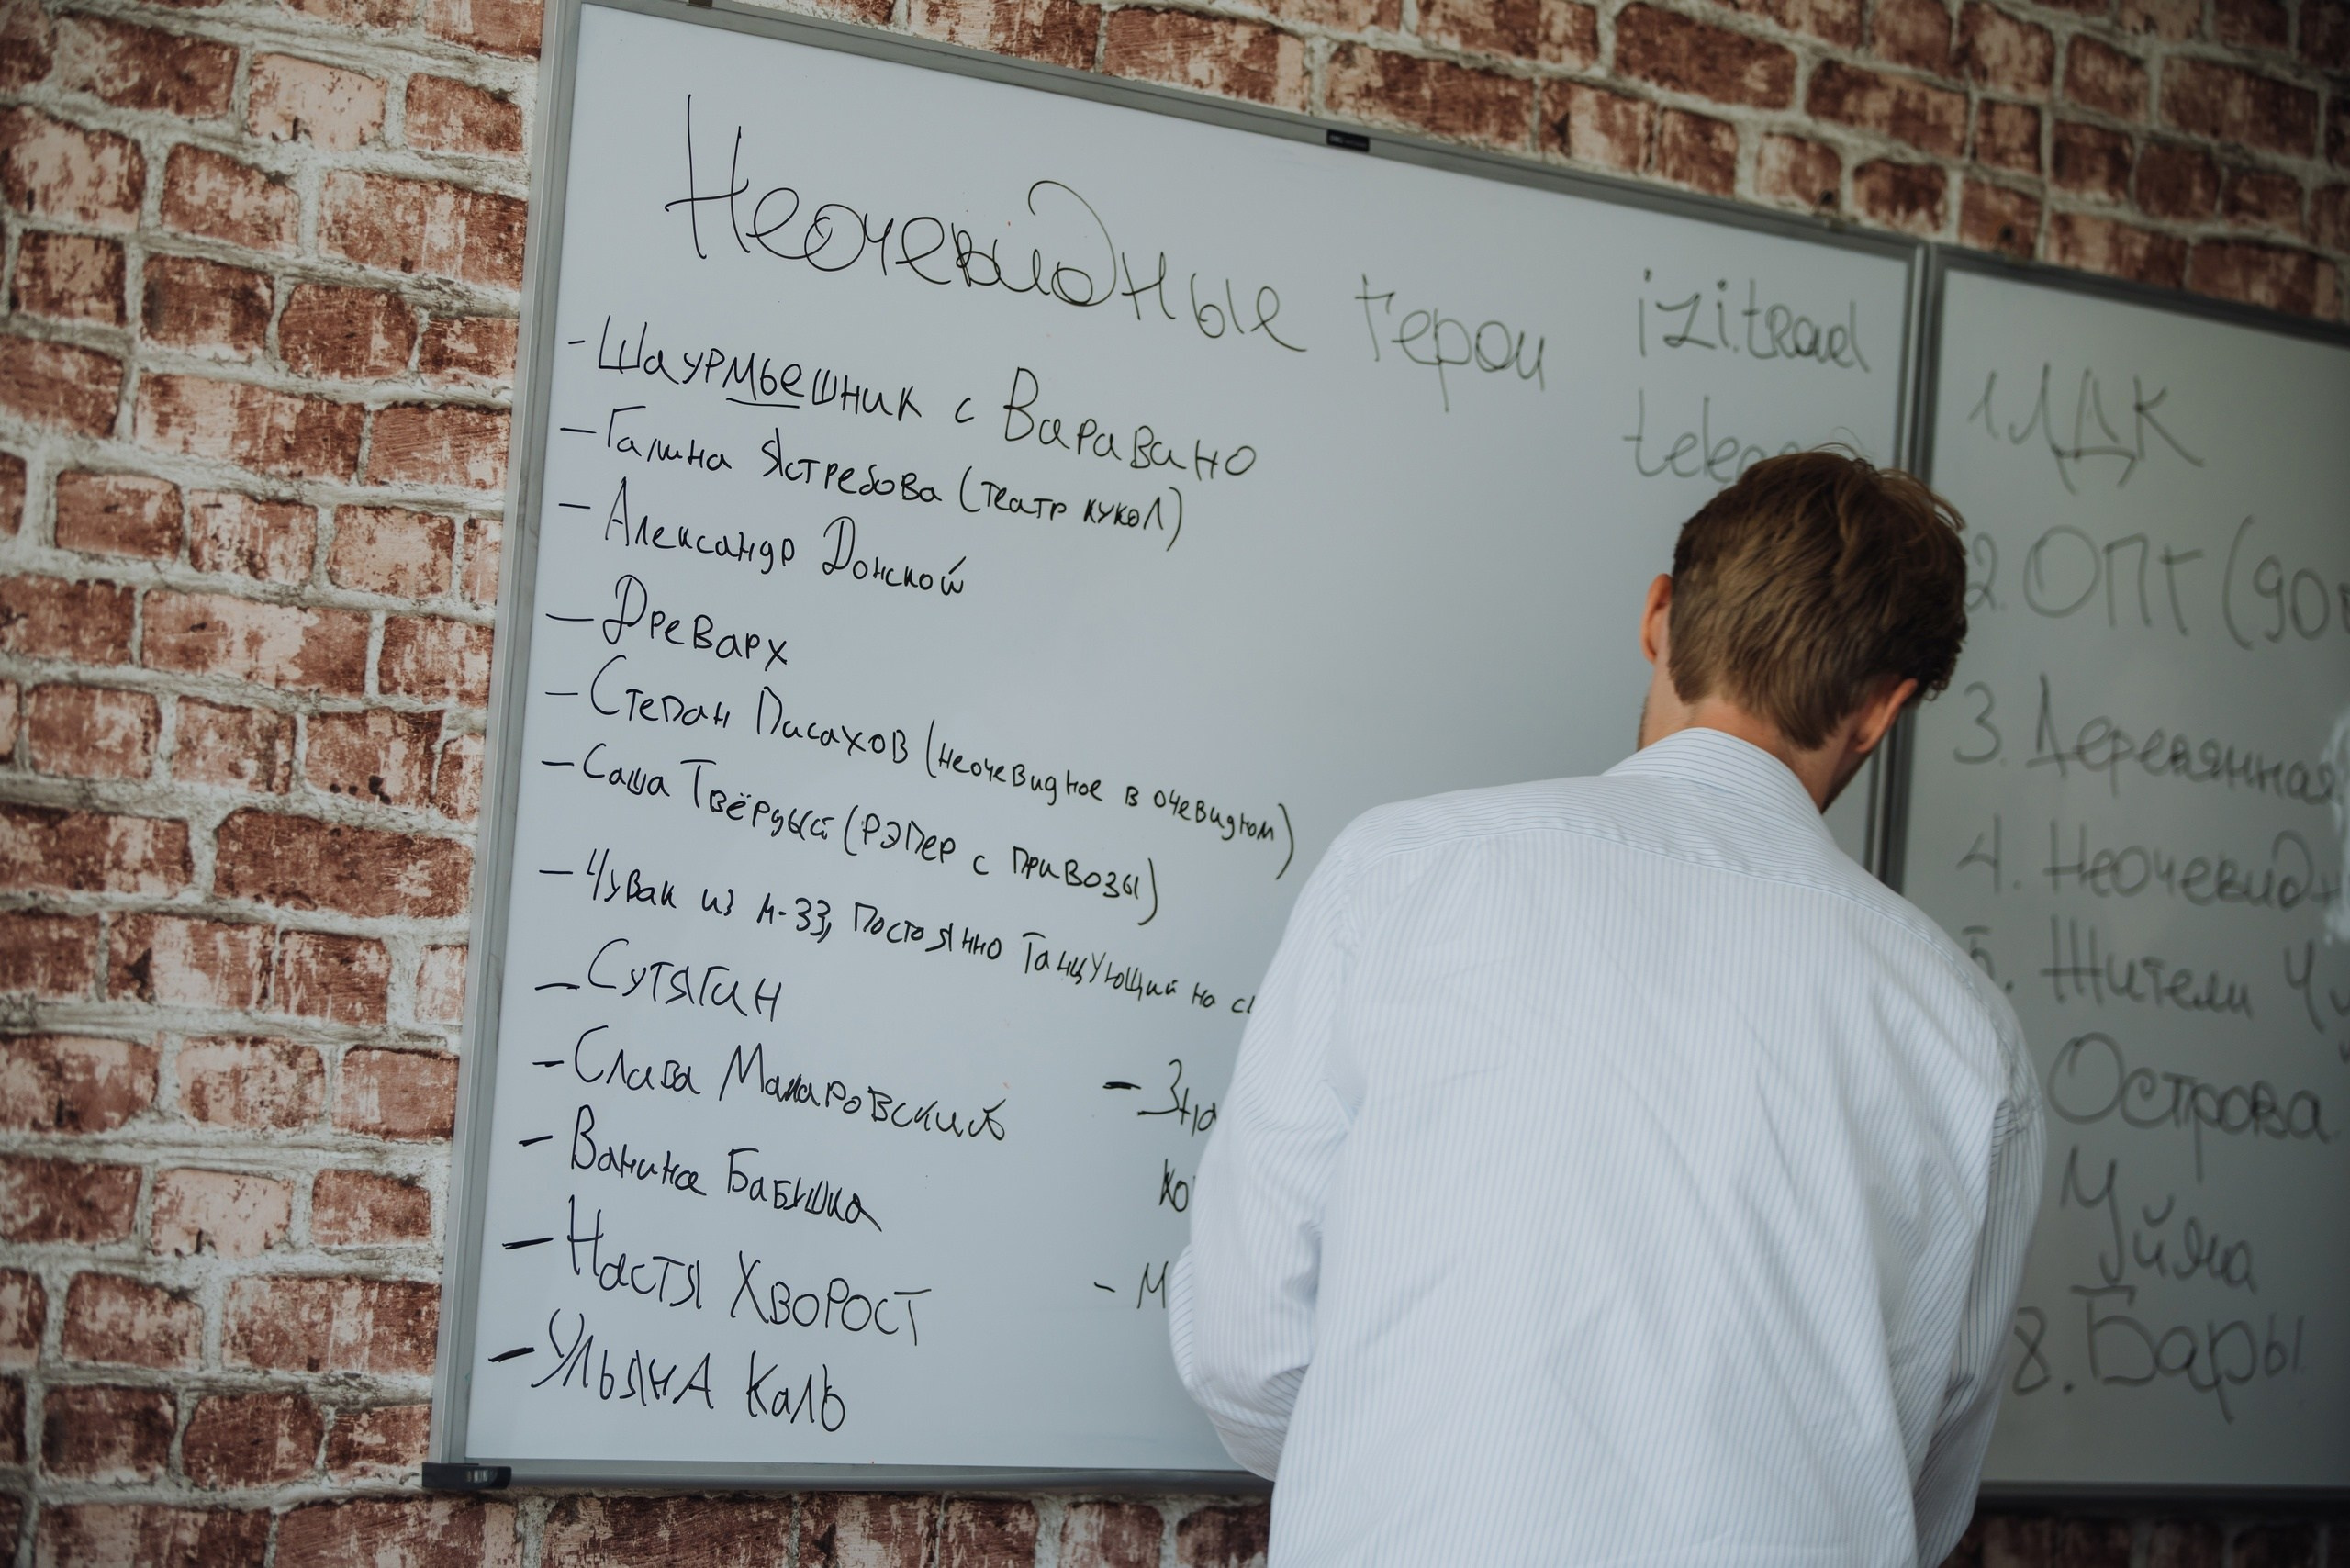 Неочевидные герои
izi.travel
- Шаурмьешник с Варавино
- Галина Ястребова (театр кукол)
- Александр Донской
- Древарх
- Степан Писахов (неочевидное в очевидном)
- Саша Твёрдый (рэпер с Привозы)
- Чувак из М-33, постоянно танцующий на
- Сутягин
- Слава Макаровский
- Ванина Бабушка
- Настя Хворост
- Ульяна Каль
- М
1. ЛДК
2. ОПТ (90
3. Деревянная
4. Неочевидн
5. Жители
Острова
Уйма
8. Бары